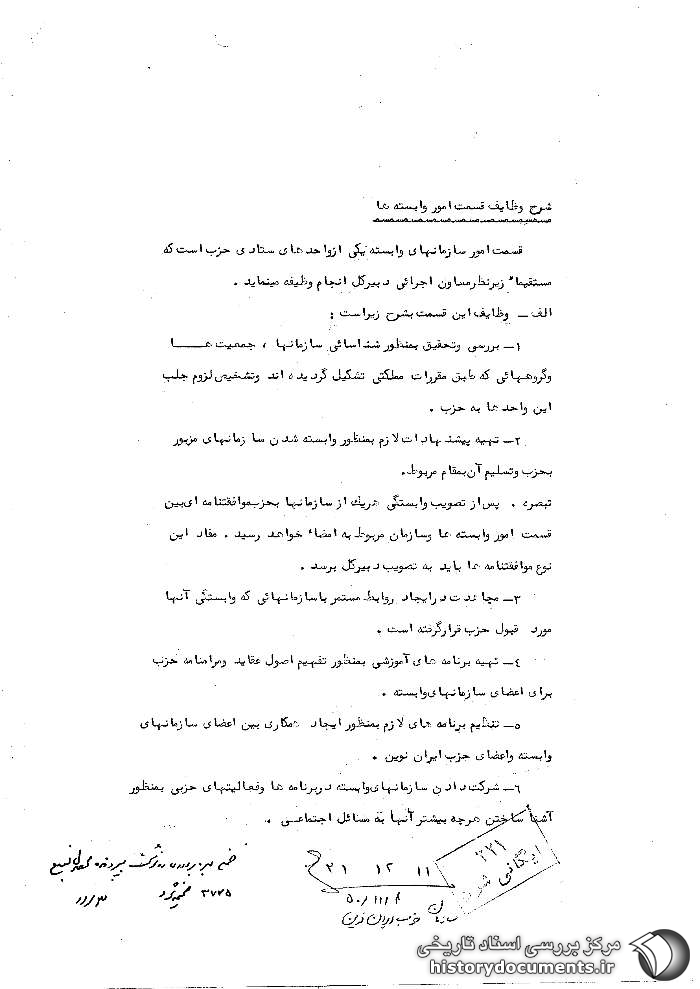 شرح وظایف قسمت امور وابسته ها
قسمت امور سازمانهای وابسته یکی ازواحدهای ستادی حزب است که
مستقیماً زیرنظرمعاون اجرائی دبیرکل انجام وظیفه مینماید .
الف ـ وظایف این قسمت بشرح زیراست :
۱ـ بررسی وتحقیق بمنظور شناسائی سازمانها ، جمعیت هـا
وگروههائی که طبق مقررات مملکتی تشکیل گردیده اند وتشخیص لزوم جلب
این واحدها به حزب .
۲ـ تهیه پیشنهادات لازم بمنظور وابسته شدن سازمانهای مزبور
بحزب وتسلیم آن بمقام مربوط.
تبصره . پس از تصویب وابستگی هریک از سازمانها بحزب موافقتنامه ای بین
قسمت امور وابسته ها وسازمان مربوط به امضاء خواهد رسید . مفاد این
نوع موافقتنامه ها باید به تصویب دبیرکل برسد .
۳ـ مجاهدت درایجاد روابط مستمر باسازمانهائی که وابستگی آنها
مورد قبول حزب قرارگرفته است .
٤ـ تهیه برنامه های آموزشی بمنظور تفهیم اصول عقاید ومرامنامه حزب
برای اعضای سازمانهای وابسته .
۵ـ تنظیم برنامه های لازم بمنظور ایجاد همکاری بین اعضای سازمانهای
وابسته واعضای حزب ایران نوین .
٦ـ شرکت دادن سازمانهای وابسته دربرنامه ها وفعالیتهای حزبی بمنظور
آشنا ساختن هرچه بیشتر آنها به مسائل اجتماعی .
۲۲۱
بایگانی شد
۲۱ ۱۲ ۱۱
سازمان حزب ایران نوین
۳۷۷۵
مرکز بررسی اسناد تاریخی
historydocuments.ir